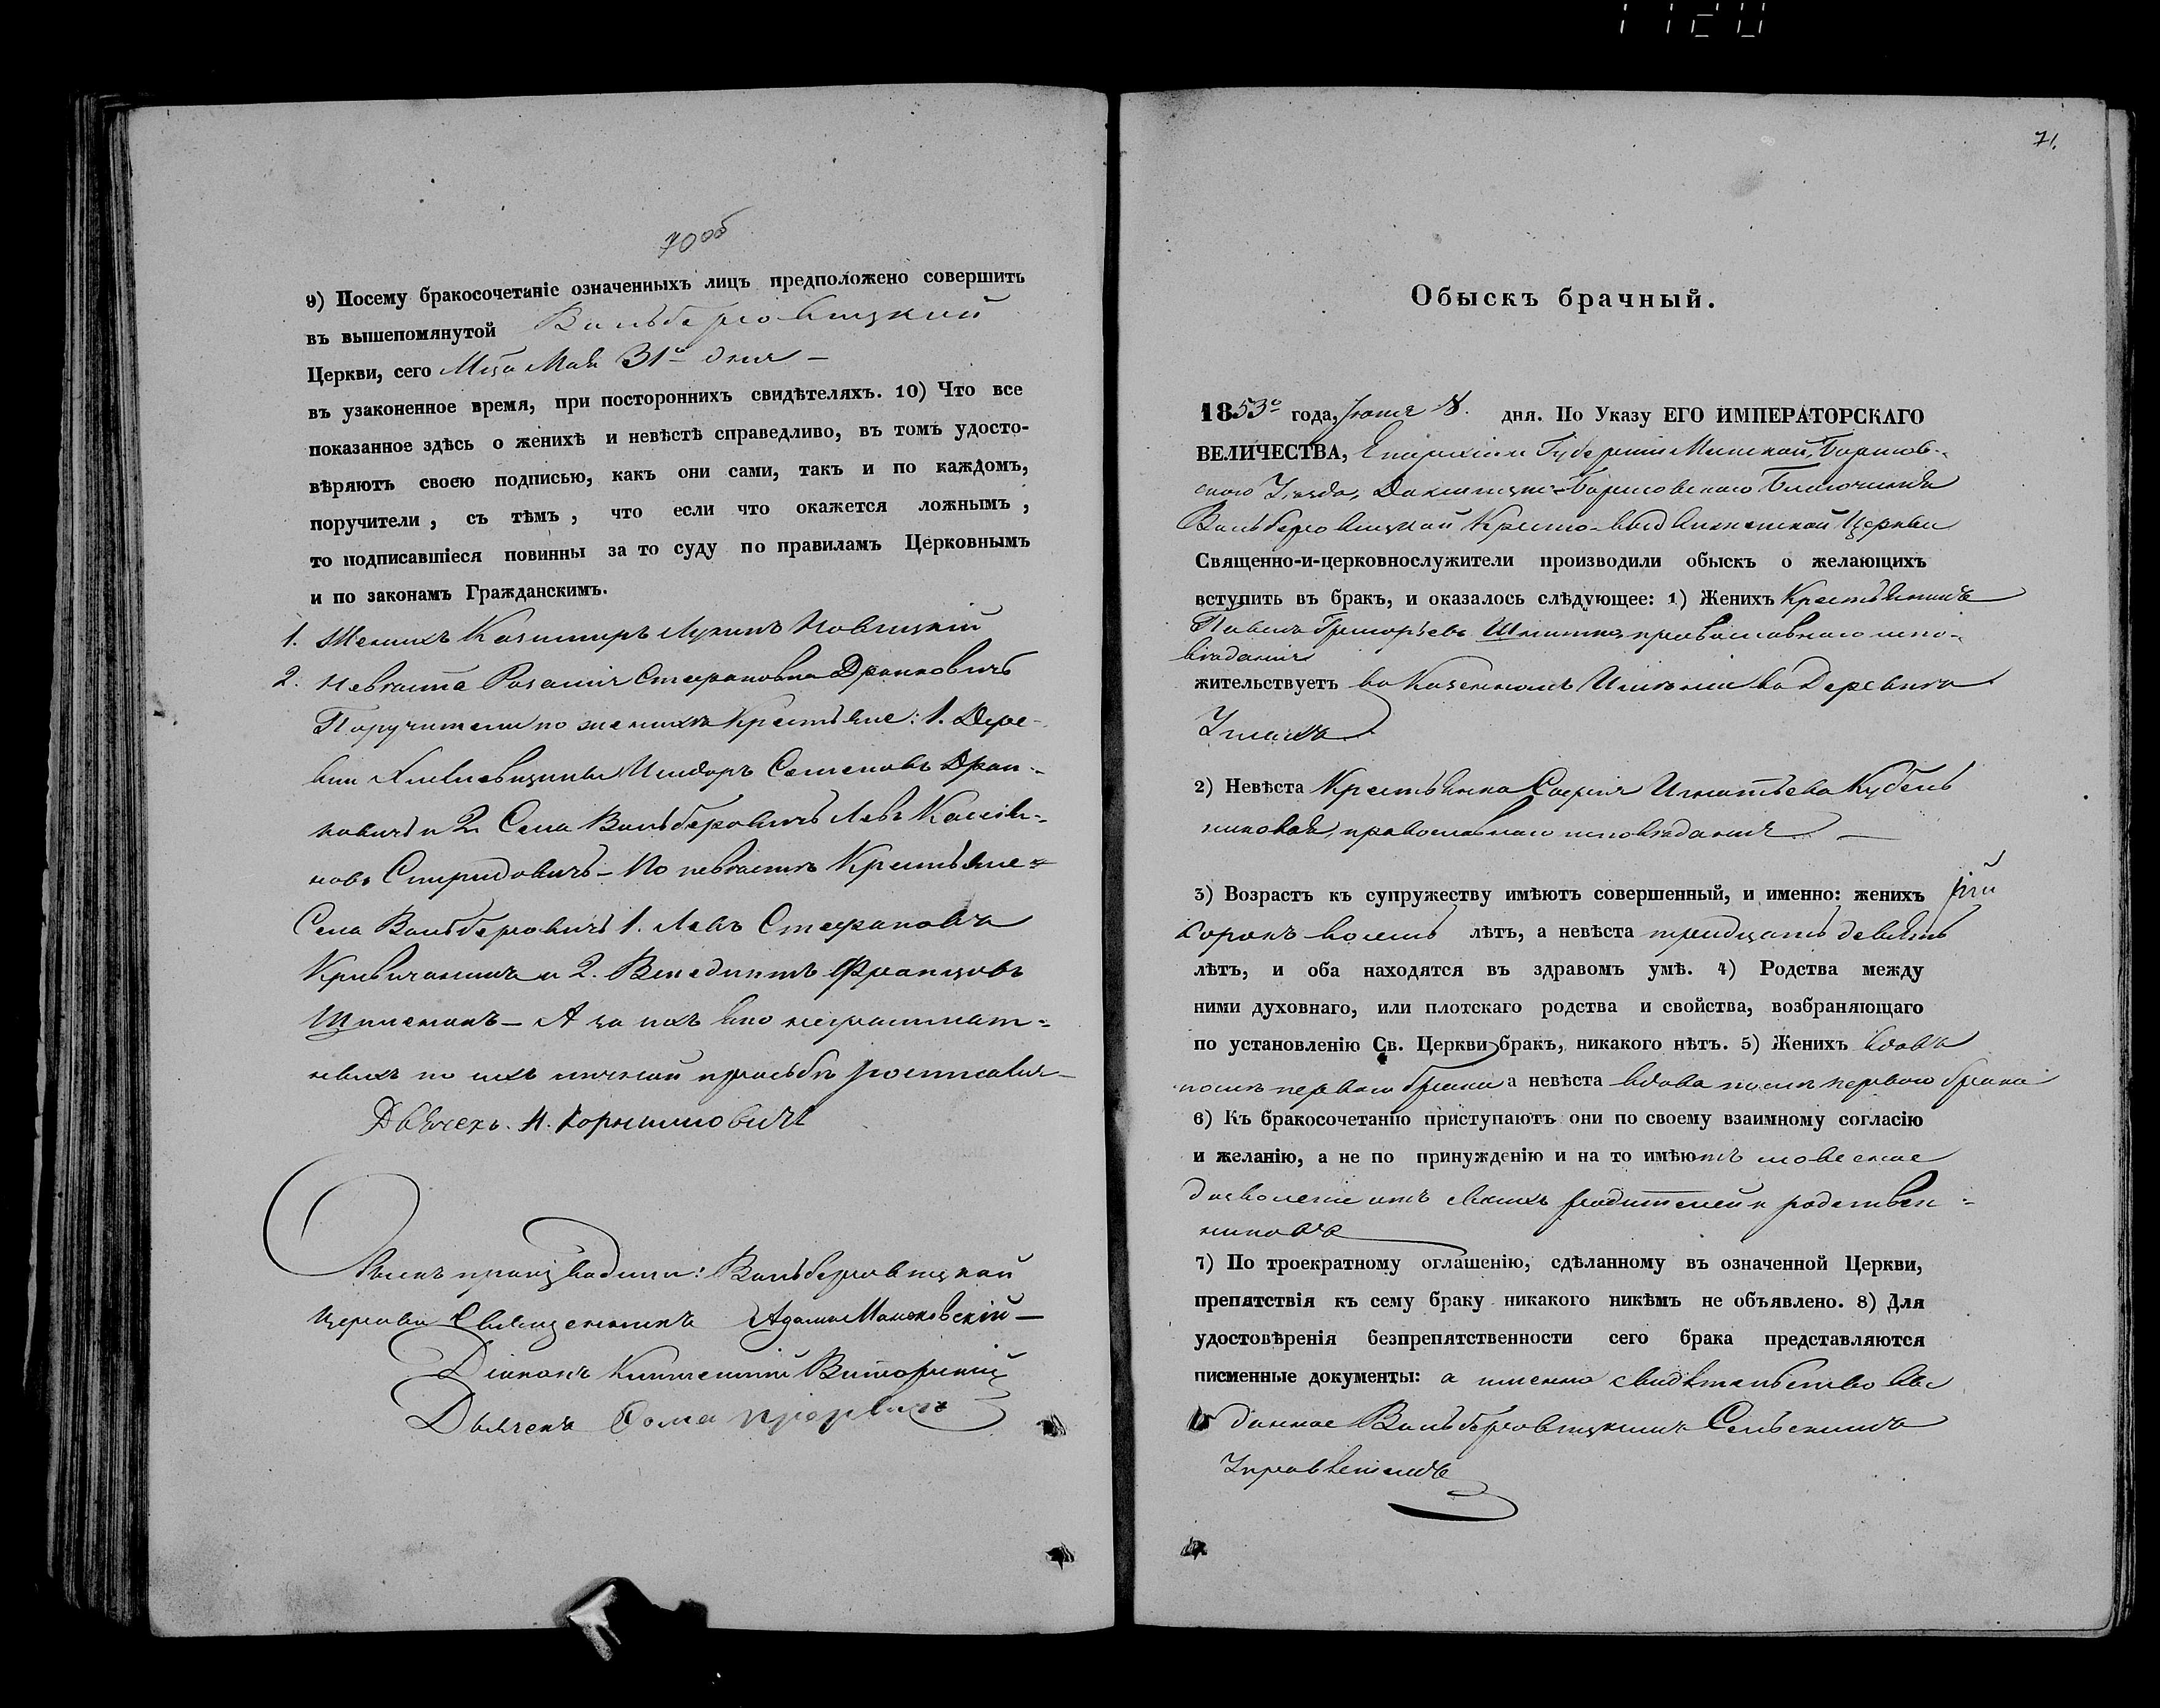 70 об
9) Посему бракосочетаніе означенныхъ лицъ предположено совершить
въ вышепомянутой Вольберовицкой
Церкви, сего Мца Мая 31го дня —
въ узаконенное время, при постороннихъ свидѣтеляхъ. 10) Что все
показанное здѣсь о женихѣ и невѣстѣ справедливо, въ томъ удосто-
вѣряютъ своею подписью, какъ они сами, такъ и по каждомъ,
поручители, съ тѣмъ, что если что окажется ложнымъ,
то подписавшіеся повинны за то суду по правиламъ Церковнымъ
и по законамъ Гражданскимъ.
1. Женихъ Казимиръ Лукинъ Новицкій
2. Невѣста Розалія Стефановна Дранковичъ
Поручители по женихѣ Крестьяне: 1. Дере-
вни Исидоръ Семеновъ Дран-
ковичъ и 2. Села Вольберовичъ Левъ
новъ Спиридовичъ — По невѣстѣ Крестьяне
Села Вольберовичъ 1. Левъ Стефановъ
и 2. Венедиктъ Францовъ
— А за ихъ яко неграмат-
ныхъ по ихъ личной просьбѣ росписался
Дьячекъ. Н. Корнилловичъ
Обыскъ производили: Вольберовицкой
церкви Священникъ Адамъ
Діаконъ
Дьячекъ Фома
71.
Обыскъ брачный.
1853го года, Іюня 8. дня. По Указу ЕГО ИМПЕРАТОРСКАГО
ВЕЛИЧЕСТВА, Епархіи и Губерніи Минской, Борисов-
скаго Уѣзда, Докшицко-Борисовскаго Благочинія
Вольберовицкой Кресто-воздвиженской Церкви
Священно-и-церковнослужители производили обыскъ о желающихъ
вступить въ бракъ, и оказалось слѣдующее: 1) Женихъ Крестьянинъ
Павелъ Григорьевъ православнаго испо-
вѣданія
жительствуетъ въ Казенномъ Имѣніи въ Деревнѣ

2) Невѣста Крестьянка Софія Игнатьева Кубель
никовая, православнаго исповѣданія
3) Возрастъ къ супружеству имѣютъ совершенный, и именно: женихъ
сорокъ восемь лѣтъ, а невѣста тридцать девять
лѣтъ, и оба находятся въ здравомъ умѣ. 4) Родства между
ними духовнаго, или плотскаго родства и свойства, возбраняющаго
по установленію Св. Церкви бракъ, никакого нѣтъ. 5) Женихъ вдовъ
послѣ перваго брака а невѣста вдова послѣ перваго брака
6) Къ бракосочетанію приступаютъ они по своему взаимному согласію
и желанію, а не по принужденію и на то имѣютъ словесное
дозволеніе отъ своихъ родителей и родствен-
никовъ
7) По троекратному оглашенію, сдѣланному въ означенной Церкви,
препятствія къ сему браку никакого никѣмъ не объявлено. 8) Для
удостовѣренія безпрепятственности сего брака представляются
писменные документы: а именно свидѣтельство вы
данное Вольберовицкимъ Сельскимъ
Управленіемъ